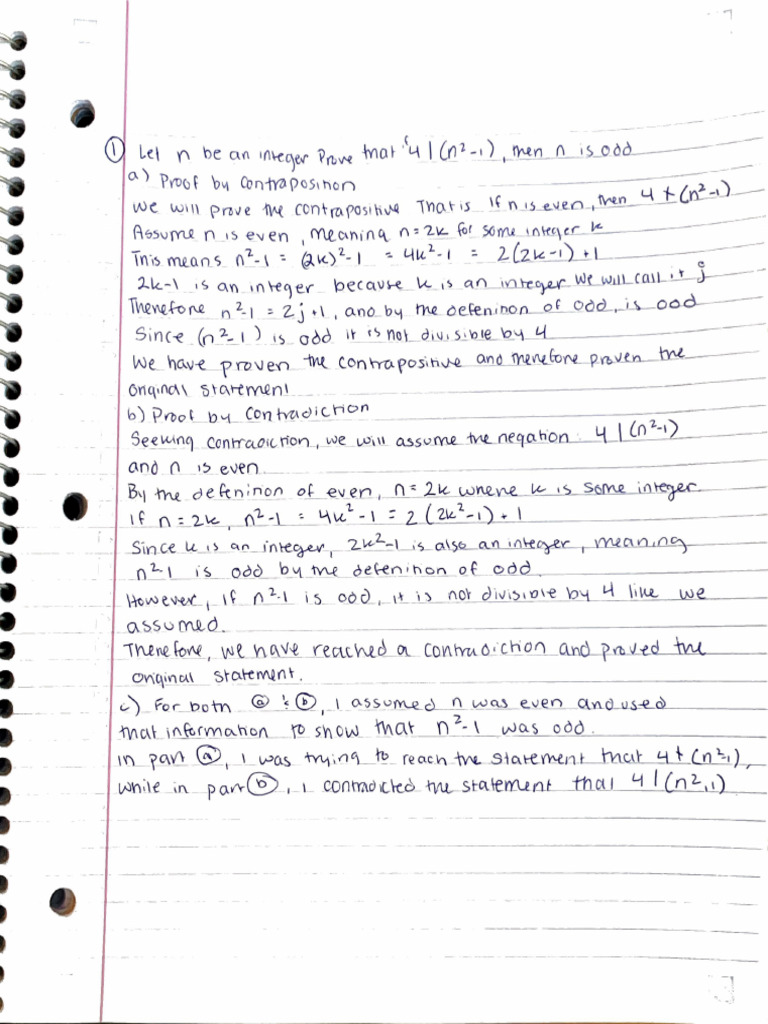 ① Let n be an integer Prove that if 4 | (n²-1), then n is odd
a) Proof by contraposition
we will prove the contrapositive That is if n is even, then 4 ∤ (n²-1)
Assume n is even, meaning n=2k for some integer k
This means n²-1 = (2k)²-1 = 4k²-1 = 2(2k-1)+1
2k-1 is an integer because k is an integer we will call it j
Therefore n²-1 = 2j+1, and by the defeninon of odd, is odd
Since (n²-1) is odd it is not divisible by 4
We have proven the contrapositive and therefore proven the
original statement
b) Proof by contradiction
Seeking contradiction, we will assume the negation: 4 | (n²-1)
and n is even.
By the defeninon of even, n=2k where k is some integer.
If n=2k, n²-1 = 4k²-1 = 2(2k²-1)+1
Since k is an integer, 2k²-1 is also an integer, meaning
n²-1 is odd by the defenition of odd.
However, if n²-1 is odd, it is not divisible by 4 like we
assumed.
Therefore, we have reached a contradiction and proved the
original statement.
c) For both ⓐ & ⓑ, I assumed n was even and used
that information to show that n²-1 was odd.
in part ⓐ, I was trying to reach the statement that 4 ∤ (n²-1),
while in part ⓑ, I contradicted the statement that 4 | (n²-1)